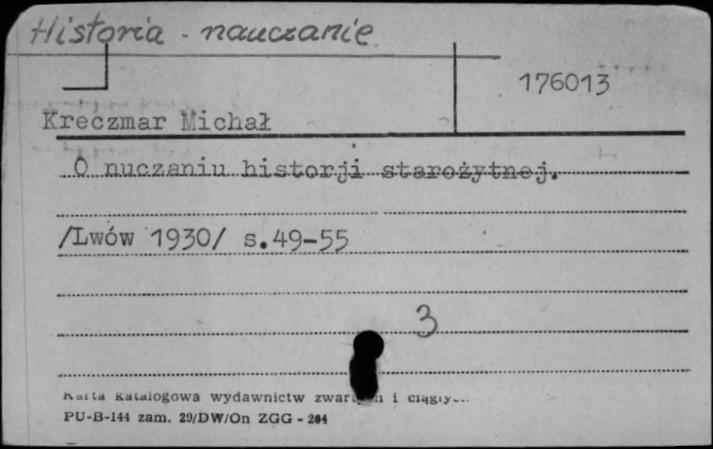 Historia - nauczanie
176013
Kreczmar Michał
O nuczaniu historji starożytnej.
/Lwów 1930/ s.49-55
3
Karta katalogowa wydawnictw i
PU-B-144 zam. 29/DW/On ZGG - 204